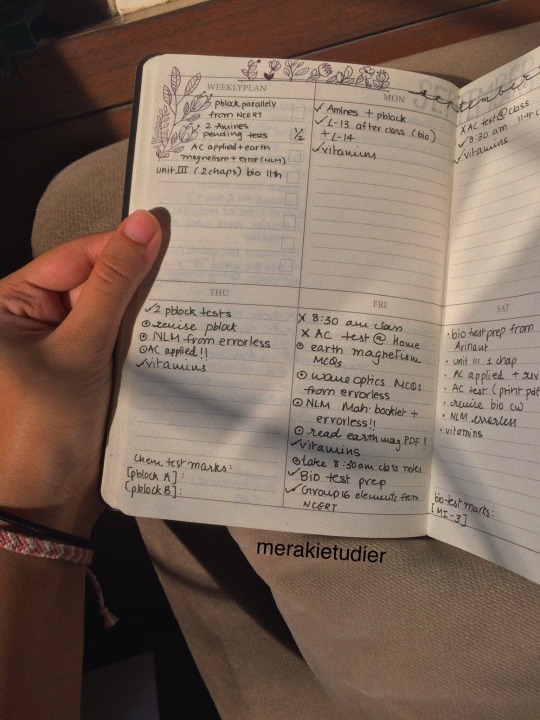 WEEKLYPLAN
pblock parallely
from NCERT
2 Amines
pending tests 1/2
AC applied + earth
magnetism + error (NLM)
unit III (2 chaps) bio 11th
MON
✓ Amines + pblock
✓ L-13 after class (bio)
+ L-14
✓ vitamins
september
X AC test @ class
✓ 8:30 am 11th
✓ vitamins
THU
✓ 2 pblock tests
revise pblock
NLM from errorless
AC applied!!
✓ vitamins
chem test marks:
[pblock A]:
(pblock B]:
FRI
X 8:30 am class
X AC test @ home
earth magnetism
MCQs
wave optics MCQs
from errorless
NLM Mah. booklet +
errorless!!
read earth mag PDF!
✓ vitamins
take 8:30am class notes
✓ Bio test prep
✓ Group 16 elements from
NCERT
SAT
• bio test prep from
• unit III 1 chap
• AC applied + rev
• AC test (print pdf
• revise bio cw
• NLM errorless
• vitamins
bio test marks:
[MI-3]
merakietudier